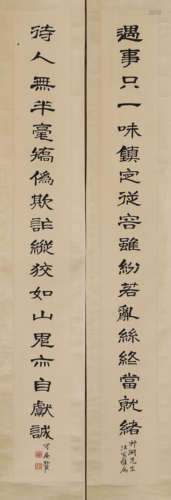 遇事只一味鎮定從容雖紛若亂絲終當就緒
待人無半毫矯偽欺詐縱狡如山鬼亦自獻誠